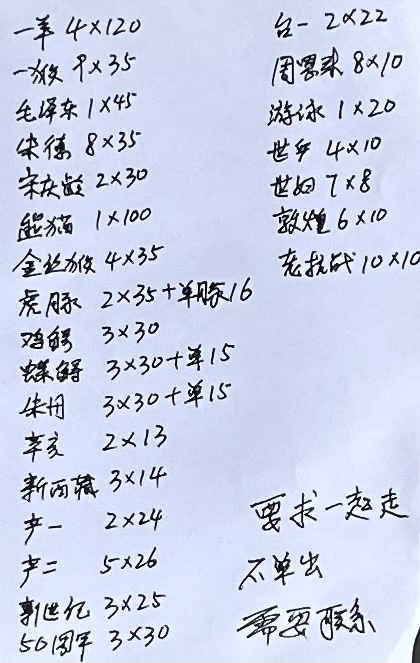 一羊 4×120
一猴 9×35
毛泽东 1×45
朱德 8×35
宋庆龄 2×30
熊猫 1×100
金丝猴 4×35
虎豚 2×35+单豚16
鸡鳄 3×30
蝶鲟 3×30+单15
朱丹 3×30+单15
辛亥 2×13
新西藏 3×14
产一 2×24
产二 5×26
新世纪 3×25
50周年 3×30
台一 2×22
周恩来 8×10
游泳 1×20
世乒 4×10
世妇 7×8
敦煌 6×10
老抗战 10×10
要求一起走
不单出
需要联系